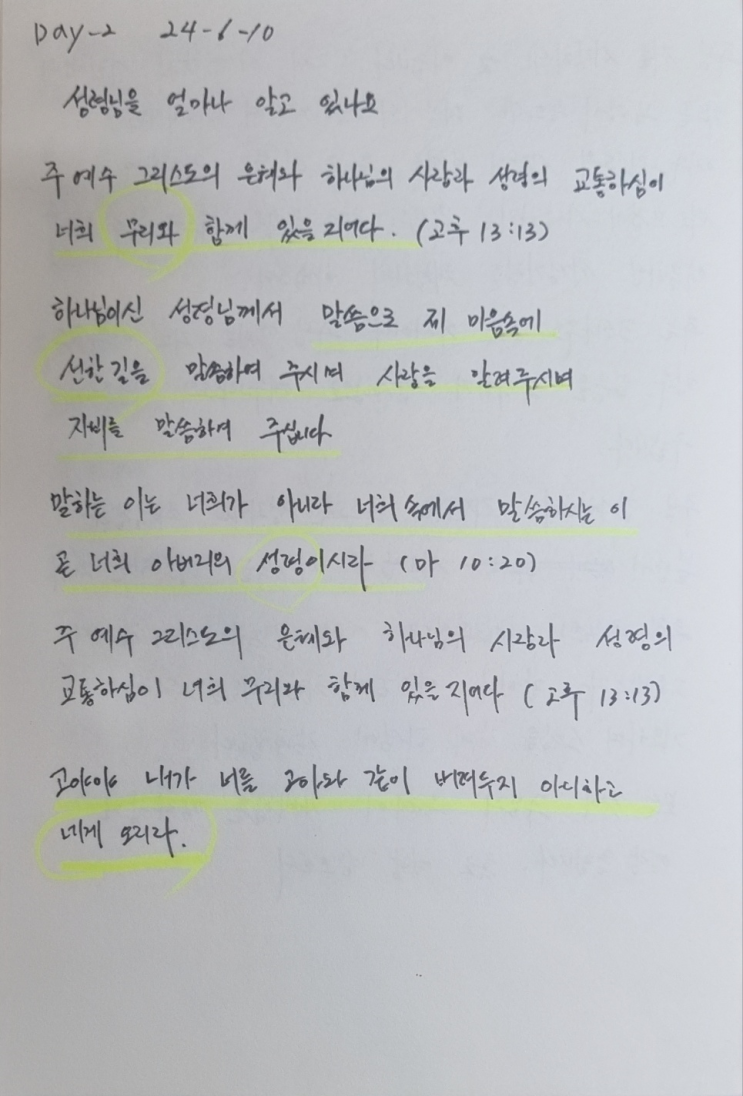 Day-2 24-6-10
성령님을 얼마나 알고 있나요
주 예수 그리스도의 은혜와 하나님의 사랑과 성령의 교통하심이
너희 무리와 함께 있을지어다. (고후 13:13)
하나님이신 성령님께서 말씀으로 제 마음속에
선한 길을 말씀하여 주시며 사랑을 알려주시며
자비를 말씀하여 주십니다
말하는 이는 너희가 아니라 너희 속에서 말씀하시는 이
곧 너희 아버지의 성령이시라 (마 10:20)
주 예수 그리스도의 은혜와 하나님의 사랑과 성령의
교통하심이 너희 무리와 함께 있을지어다 (고후 13:13)
내가 너를 고아와 같이 버려두지 아니하고
네게 오리라.